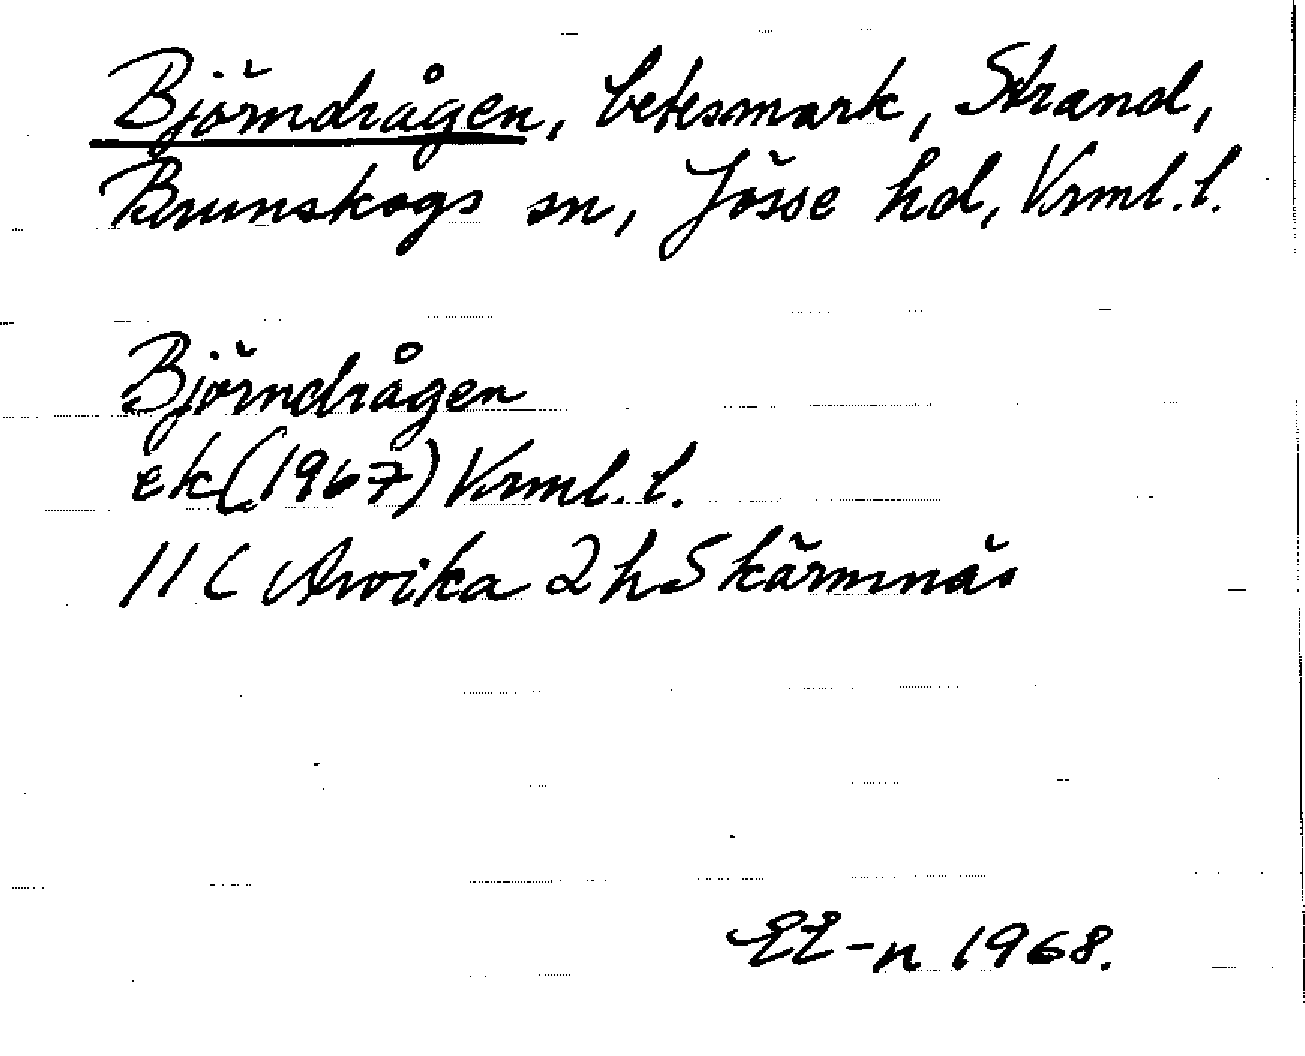 Björndrågen, betesmark, Strand,
Brunskogs sn, Jösse hd, Vrml. l.
Björndrågen
ek (1967) Vrml. l.
11 C Arvika 2 h Skärmnäs
1968.